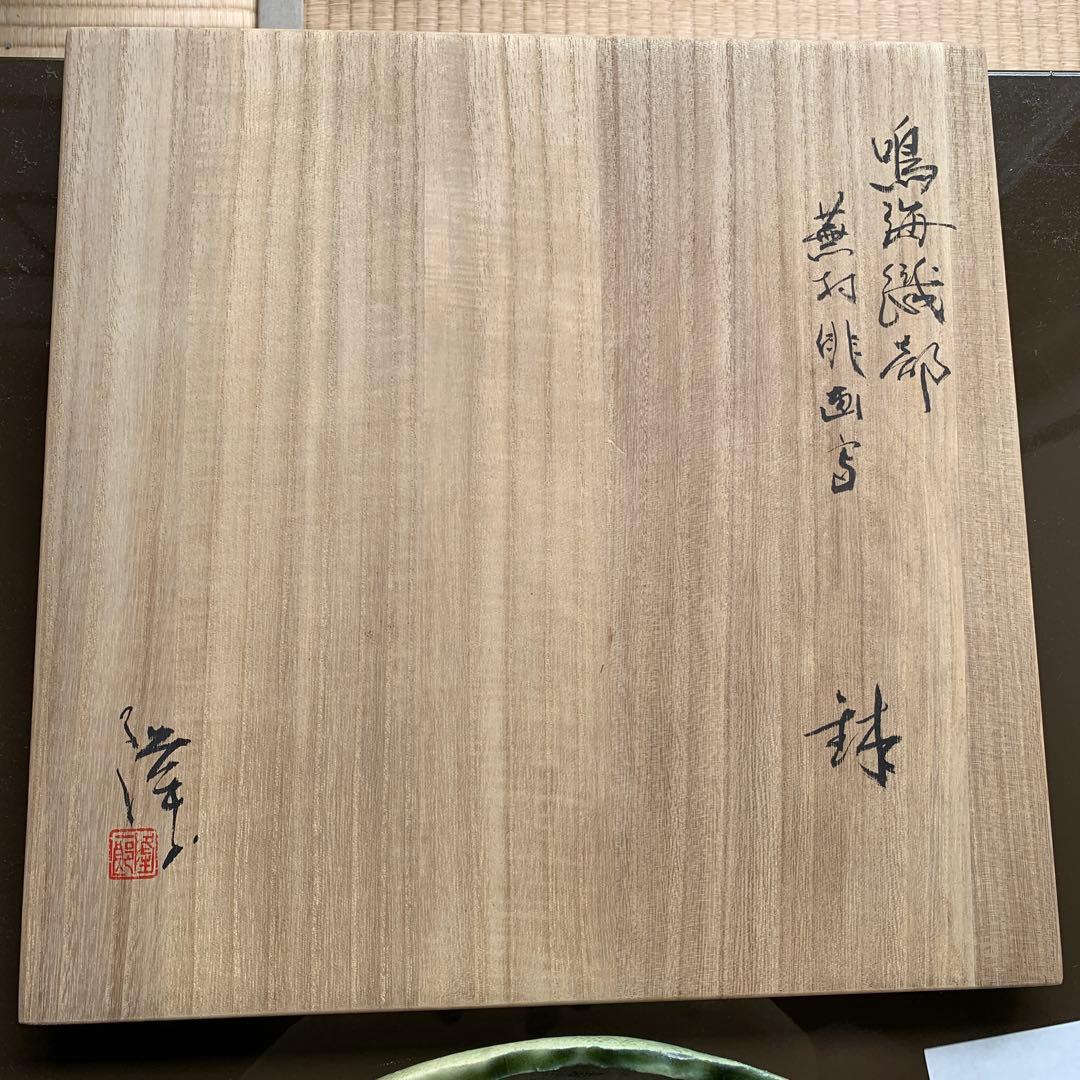 鳴海織部
蕪村俳画写
鉢
隆